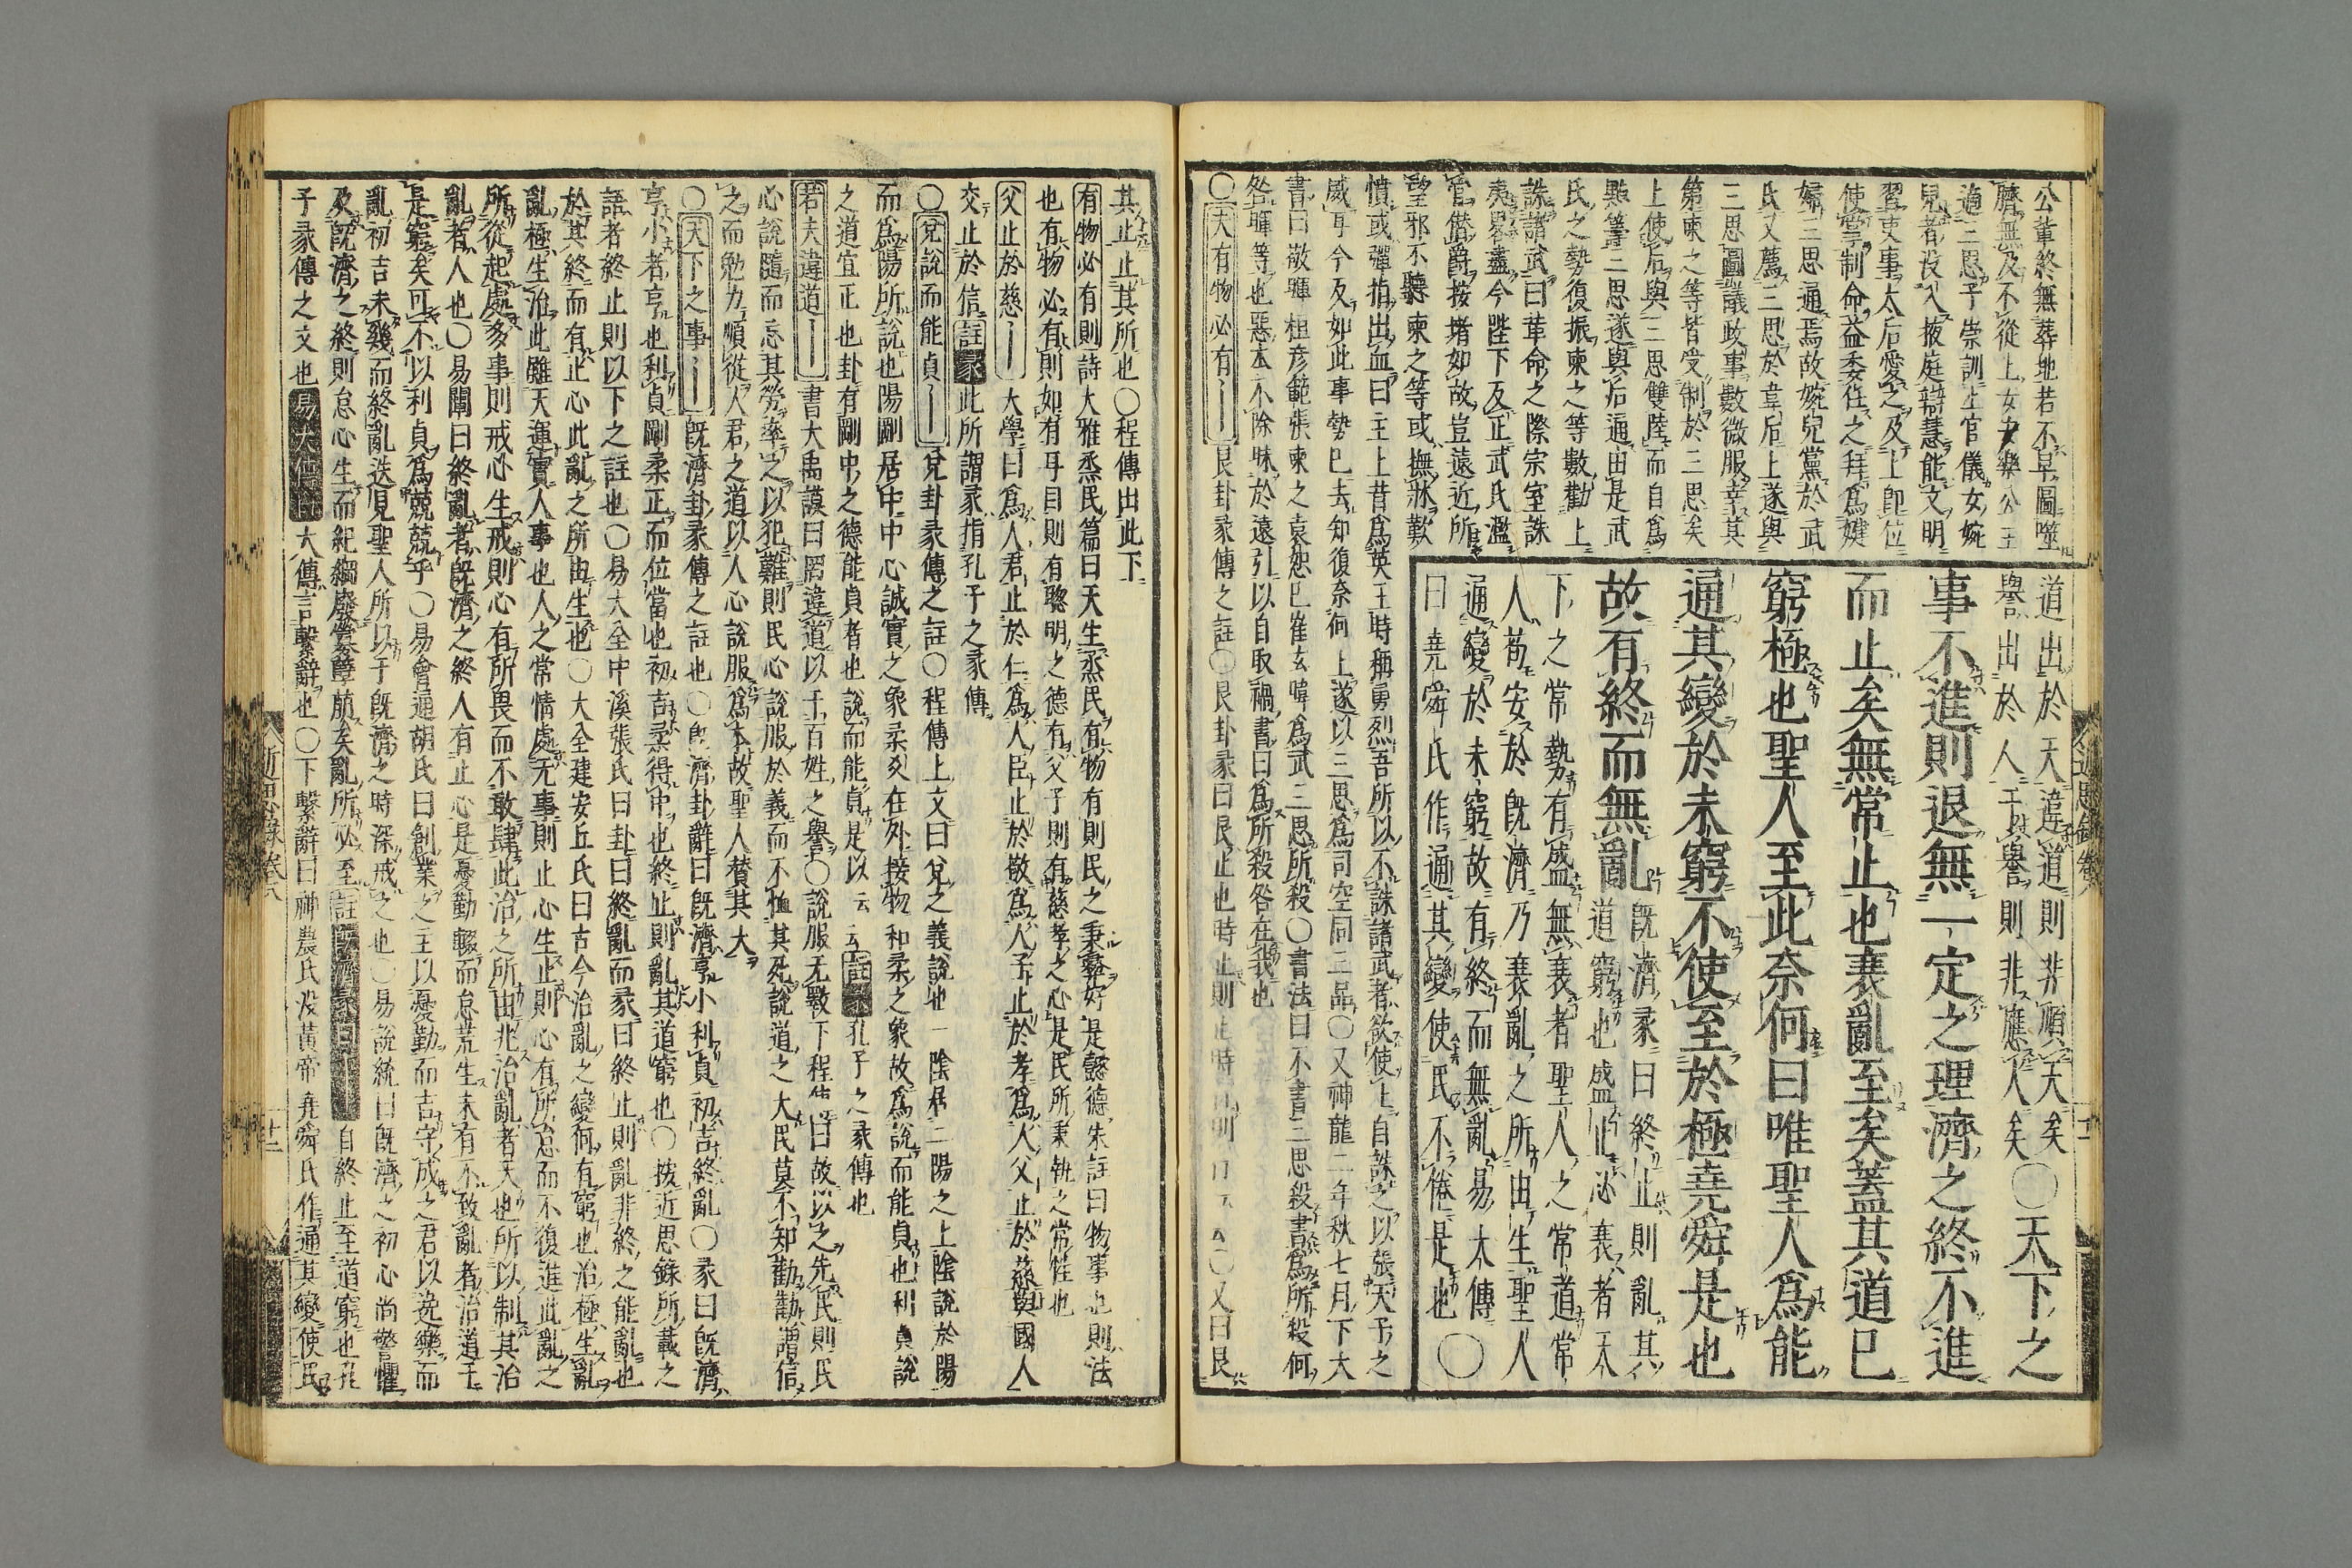 公葦終無葬地若不早圖噬
臍無及不從上女
通三思子崇訓上官儀女婉
兒者没入掖庭辯慧能文明
習吏事太后愛之及上即位
使掌制命益委任之拜爲婕
婦三思通焉故婉兒黨於武
氏又薦三思於韋后上遂與
三思圖議政事數微服幸其
第柬之等皆受制於三思矣
上使后與三思雙陸而自爲
點籌三思遂與后通由是武
氏之勢復振柬之等數勸上
誅諸武曰革命之際宗室誅
夷畧盡今陛下反正武氏濫
官僭爵按堵如故豈遠近所
望邪不聽柬之等或撫牀歎
憤或彈指出血曰主上昔爲英王時稱勇烈吾所以不誅諸武者欲使上自誅之以張天子之
威耳今反如此事勢已去知復奈何上遂以三思爲司空同三品〇又神龍二年秋七月下大
書曰敬暉桓彦範張柬之袁恕已崔玄暐爲武三思所殺〇書法曰不書三思殺書爲所殺何
咎暉等也惡本不除昧於遠引以自取禍書曰爲所殺咎在我也
〇夫有物必有〡〡艮卦彖傳之註〇艮卦彖曰艮止也時止則止時〇又曰艮
道出於天違道則非順天矣
譽出於人干譽則非應人矣〇天下之
事不進則退無一定之理濟之終不進
而止矣無常止也衰亂至矣蓋其道已
窮極也聖人至此奈何曰唯聖人爲能
通其變於未窮不使至於極堯舜是也
故有終而無亂既濟彖曰終止則亂其
道窮也盛止必衰者天
下之常勢有盛無衰者聖人之常道常
人苟安於既濟乃衰亂之所由生聖人
通變於未窮故有終而無亂易大傳
曰堯舜氏作通其變使民不倦是也〇
其止止其所也〇程傳出此下
有物必有則詩大雅烝民篇曰天生烝民有物有則民之秉彝好是懿德朱註曰物事也則法
也有物必有則如有耳目則有聰明之德有父子則有慈孝之心是民所秉執之常性也
父止於慈〡〡大學曰爲人君止於仁爲人臣止於敬爲人子止於孝爲人父止於慈與國人
交止於信註彖此所謂彖指孔子之彖傳
〇兌說而能貞〡〡兌卦彖傳之註〇程傳上文曰兌之義說也一陰居二陽之上陰說於陽
而爲陽所說也陽剛居中中心誠實之象柔爻在外接物和柔之象故爲說而能貞也利貞說
之道宜正也卦有剛中之德能貞者也說而能貞是以云云註彖孔子之彖傳也
若夫違道〡〡書大禹謨曰罔違道以干百姓之譽〇說服无斁下程傳曰故以之先民則民
心說隨而忘其勞率之以犯難則民心說服於義而不恤其死說道之大民莫不知勸勸謂信
之而勉力順從人君之道以人心說服爲本故聖人贊其大
〇天下之事〡〡既濟卦彖傳之註也〇既濟卦辭曰既濟亨小利貞初吉終亂〇彖曰既濟
亨小者亨也利貞剛柔正而位當也初吉柔得中也終止則亂其道窮也〇按近思錄所載之
語者終止則以下之註也〇易大全中溪張氏曰卦曰終亂而彖曰終止則亂非終之能亂也
於其終而有止心此亂之所由生也〇大全建安丘氏曰古今治亂之變何有窮也治極生亂
亂極生治此雖天運實人事也人之常情處无事則止心生止則心有所怠而不復進此亂之
所從起處多事則戒心生戒則心有所畏而不敢肆此治之所由兆治亂者天也所以制其治
亂者人也〇易闡曰終亂者既濟之終人有止心是憂勤輟而怠荒生未有不致亂者治道于
是窮矣可不以利貞爲兢兢乎〇易會通胡氏曰創業之主以憂勤而吉守成之君以逸樂而
亂初吉未幾而終亂迭見聖人所以于既濟之時深戒之也〇易說統曰既濟之初心尚警懼
及既濟之終則怠心生而紀綱廢釁孽萠矣亂所必至註既濟彖曰〡自終止至道窮也孔
子彖傳之文也易大傳大傳言繫辭也〇下繫辭曰神農氏没黃帝堯舜氏作通其變使民
近思錄卷八